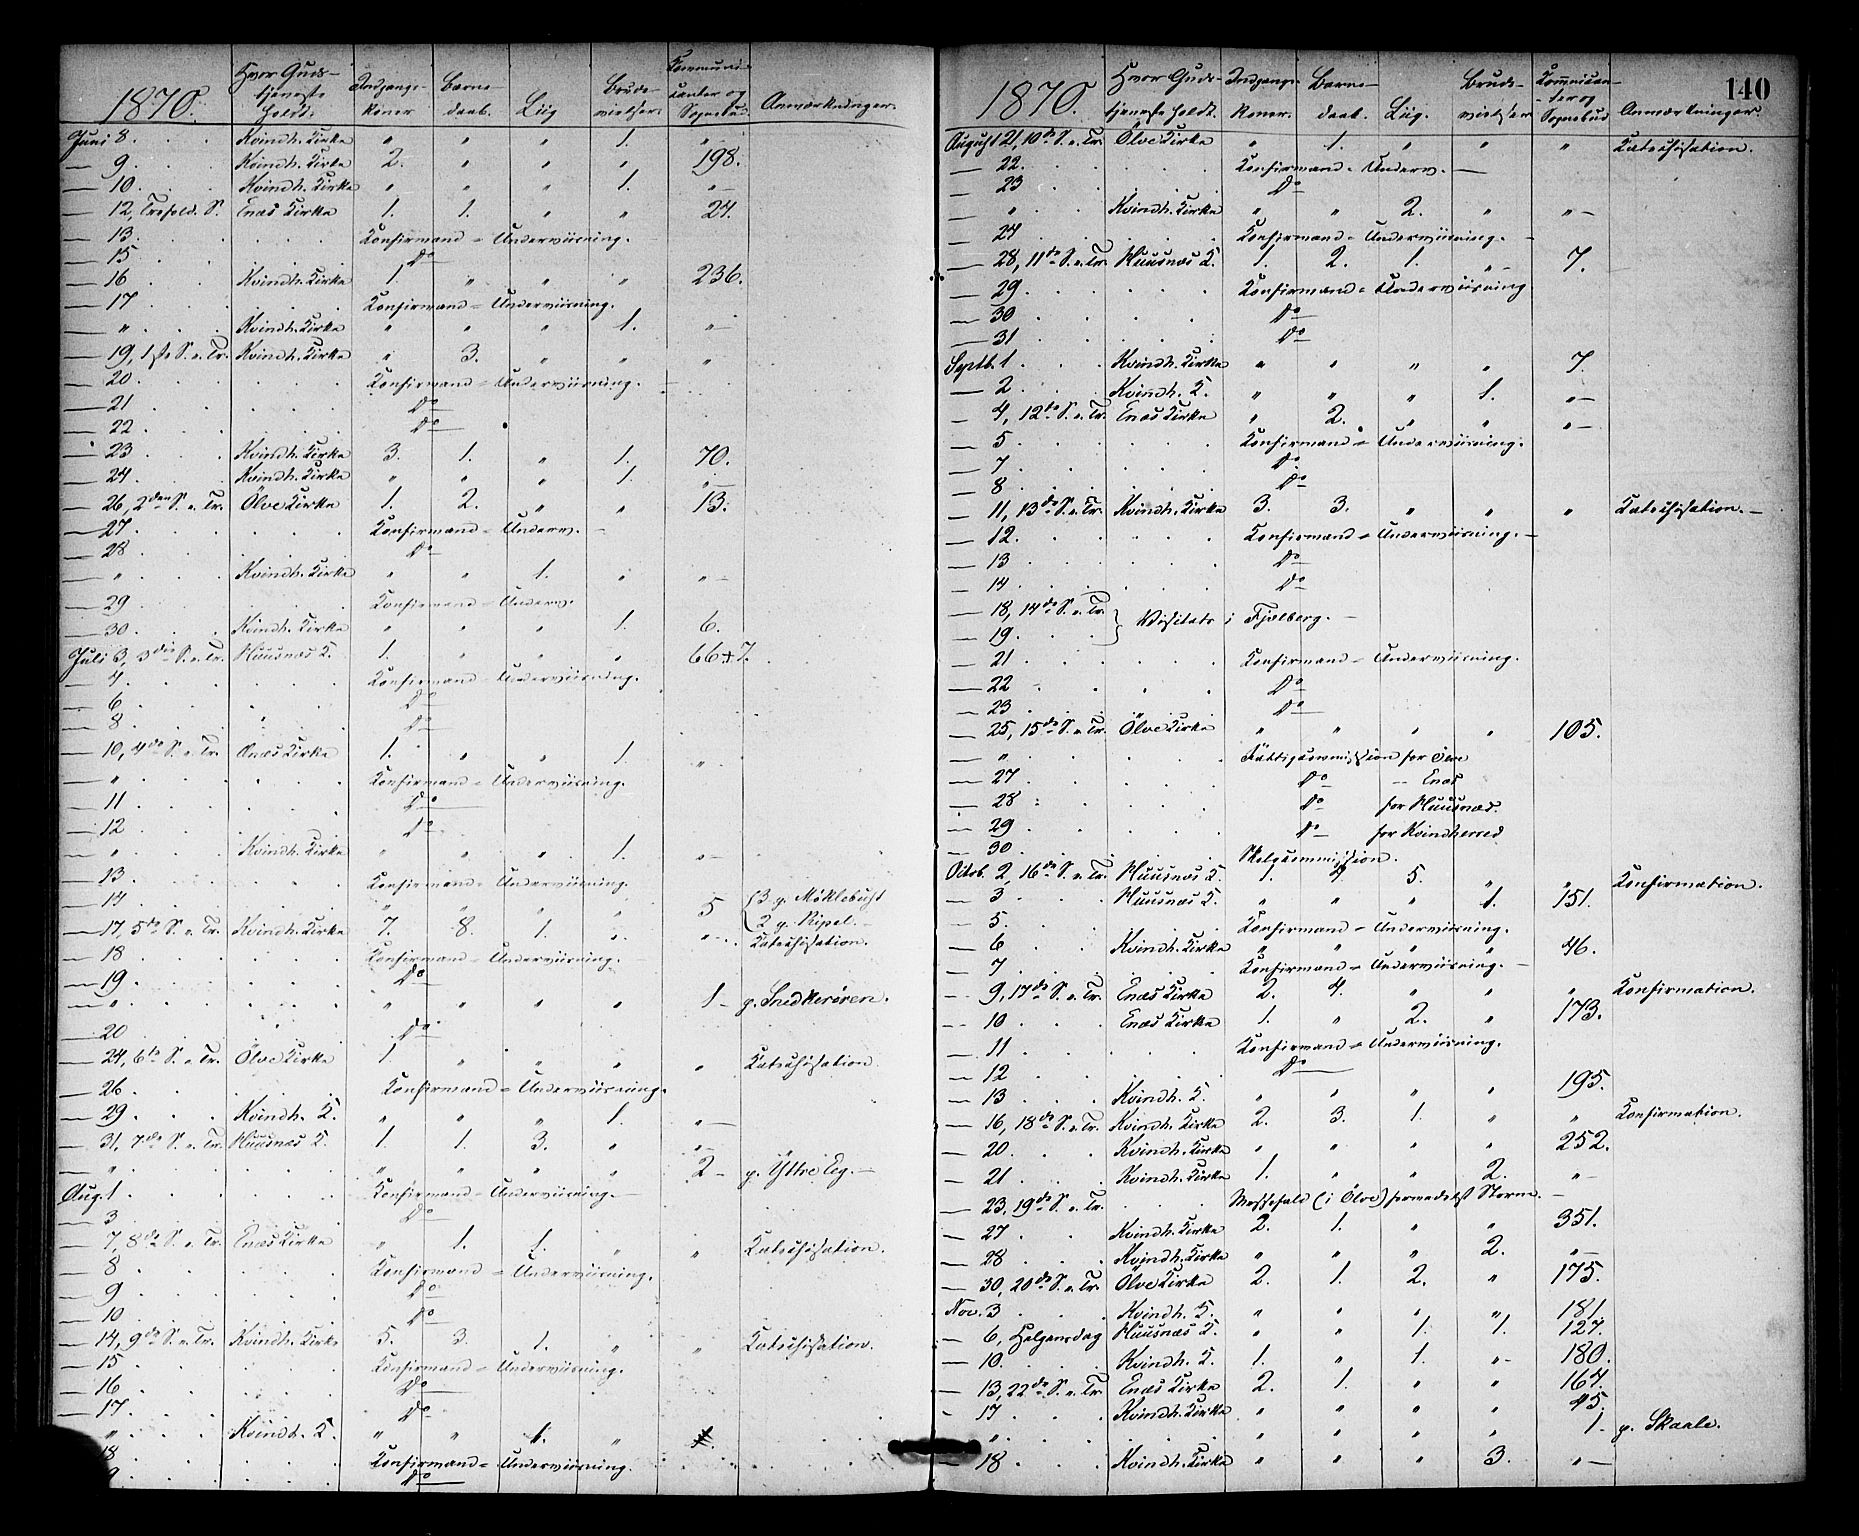 1870. Hvor Guds- tjeneste holdt. Indgangs- koner Barne- daab. Liig Brude- vielser. Kommuni- canter og Sognebud Anmærkninger.
Juni 8. Kvindh. Kirke " " " 1. "
— 9. Kvindh. Kirke 2. " " " 198.
— 10. Kvindh. Kirke " " " 1. "—
— 12, Trefold. S. Enæs Kirke 1. 1. " " 24.
— 13. Konfirmand-Underviisning.
— 15. Do
— 16 Kvindh. Kirke 1. " " " 236.
— 17 Konfirmand-Underviisning.
— " Kvindh. Kirke " " " 1. "—
— 19, 1ste S. e. Tr. Kvindh. Kirke " 3. " " "
— 20. Konfirmand-Underviisning.
— 21 Do
— 22 Do
— 23 Kvindh. Kirke 3. 1. " 1. 70.
— 24 Kvindh. Kirke " " " 1. "—
— 26, 2den S. e. Tr. Ölve Kirke 1. 2. " " 13.
— 27. Konfirmand-Underv.
— 28 Do
— " Kvindh. Kirke " " 1. " "—
— 29 Konfirmand-Underv.
— 30. Kvindh. Kirke " " " 1. 6.
Juli 3, 3die S. e. Tr. Huusnæs K. 1. " " " 66+7.
— 4. Konfirmand-Underviisning.
— 6 Do
— 8. Do
— 10, 4de S. e. Tr. Enæs Kirke 1. " " 1. "—
— " Konfirmand-Underviisning.
— 11 Do
— 12 Do
— " Kvindh. Kirke " " " 1. "—
— 13. Konfirmand-Underviisning.
— 14. " " " " 5 { 3 p. Møklebust
2 p. Ripel.
— 17, 5te S. e. Tr. Kvindh. Kirke 7. 8. 1. " "— Katechisation.
— 18 Konfirmand-Underviisning.
— 19. Do
— " " " " " 1— p. Snedkerøren.
— 20 Do
— 24, 6te S. e. Tr. Ölve Kirke 1. " " " " Katechisation
— 26 Konfirmand-Underviisning.
— 29 Kvindh. K. " " " 1. "—
— 31, 7de S. e. Tr. Huusnæs K. 1. 1. 3. " "—
— " " " " " 2— p. Yttre Eeg.—
Aug. 1 Konfirmand-Underviisning.—
— 3 Do
— 7, 8de S. e. Tr. Enæs Kirke " 1. 1. " " Katechisation.
— 8 Konfirmand-Underviisning.
— 9 Do
— 10 Do
— 14, 9de S. e. Tr. Kvindh. Kirke 5. 3. 1. " " Katechisation.
— 15 Konfirmand-Underviisning.
— 16 Do
— 17 Do
— " Kvindh. K. " " 1. "
18 Konfirmand-Underviisning.
Do
140
1870. Hvor Guds- tjeneste holdt. Indgangs- koner. Barne- daab. Liig. Brude- vielser Kommunican- ter og Sognebud Anmærkninger.
August 21, 10de S. e. Tr. Ölve Kirke " 1. " " " Katechisation.
— 22. Konfirmand-Underv.—
— 23 Do
— " Kvindh. Kirke " " 2. " "—
— 24 Konfirmand-Underviisning.—
— 28, 11te S. e. Tr. Huusnæs K. 1. 2. 1. "— 7.
— 29 Konfirmand-Underviisning
— 30 Do
— 31 Do
Septb. 1 Kvindh. Kirke " " " " 7.
— 2 Kvindh. K. " " " 1. "—
— 4, 12te S. e. Tr. Enæs Kirke " 2. " " "—
— 5 Konfirmand-Underviisning.
— 7 Do
— 8 Do
— 11, 13de S. e. Tr. Kvindh. Kirke 3. 3. " " " Katechisation.—
— 12. Konfirmand-Underviisning.—
— 13 Do
— 14 Do
— 18, 14de S. e. Tr. } Visitats i Fjelberg.—
— 19
— 21 Konfirmand-Underviisning.
— 22 Do
— 23 Do
— 25, 15de S. e. Tr. Ölve Kirke " " " " 105.
— " Fattigcommission for Ölve
— 27 Do — Enæs
— 28 Do for Huusnæs.
— 29 Do for Kvindherred
— 30. Skolecommission.
Octob. 2, 16de S. e. Tr. Huusnæs K. 1. 4. 5. " " Konfirmation.
— 3 Huusnæs K. " " " 1. 151.
— 5. Konfirmand-Underviisning.
— 6 Kvindh. Kirke " " " " 46.
— 7 Konfirmand-Underviisning.—
— 9, 17de S. e. Tr. Enæs Kirke 2. 4. " " " Konfirmation.
— 10 Enæs Kirke 1. " 2. " 173.
— 11 Konfirmand-Underviisning.
— 12 Do
— 13 Kvindh. K. " " " " 195.
— 16, 18de S. e. Tr. Kvindh. Kirke 2. 3. 1. " " Konfirmation.
— 20. Kvindh. Kirke " " " " 252.
— 21 Kvindh. Kirke 1. " " 2. "—
— 23, 19de S. e. Tr. Messefald (i Ölve) formedelst Storm.—
— 27 Kvindh. Kirke 2. 1. " " 351.
— 28 Kvindh. Kirke " " " 2. "—
— 30, 20de S. e. Tr. Ölve Kirke 2. 1. 2. " 175.
Nov. 3 Kvindh. K. " " " " 181.
— 6, Helgensdag Huusnæs K. " " 1. 1. 127.
— 10. Kvindh. K. 1. " 1. "— 180.
— 13, 22de S. e. Tr. Enæs Kirke 2. 1. " " 167.
— 17 Kvindh. Kirke " " " " 45.
— " " " " " 1— p. Skaale.
— 18 Kvindh. Kirke " " " 3. "—